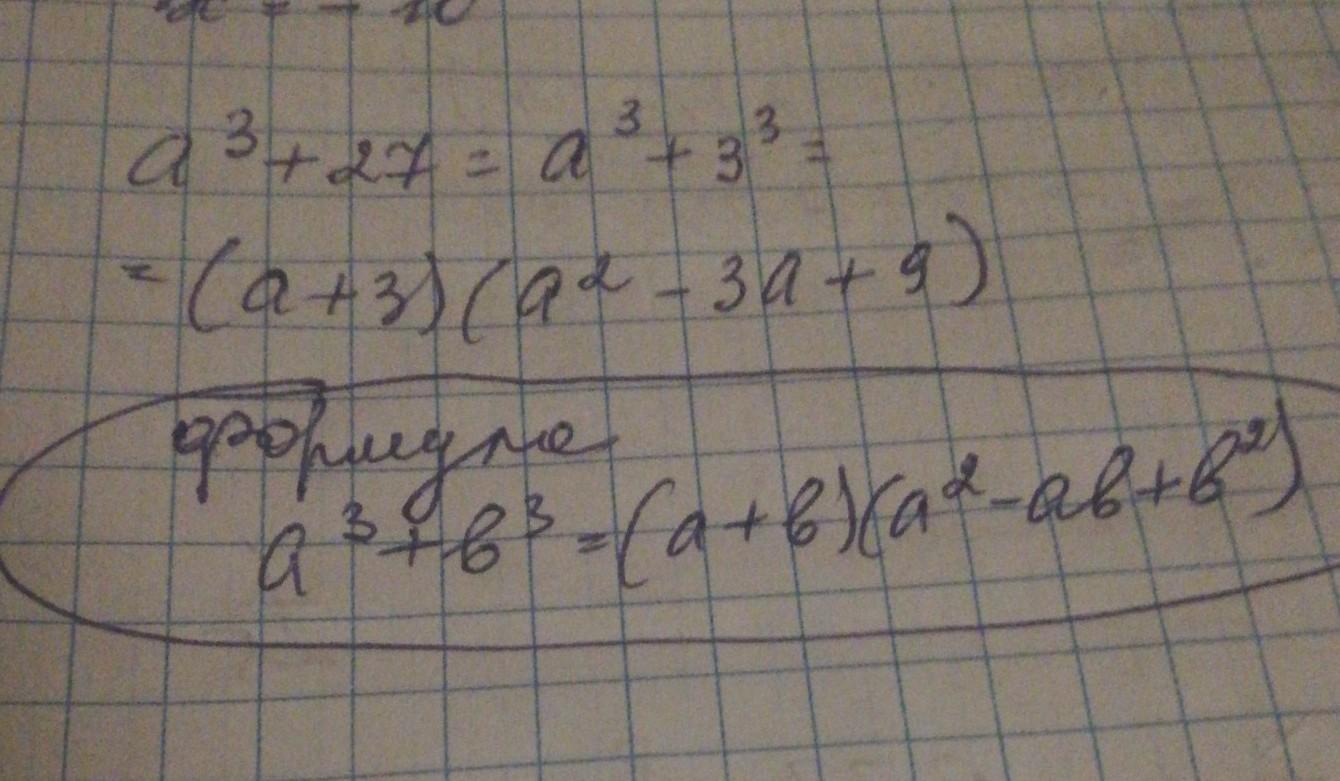 a³ + 27 = a³ + 3³ =
= (a + 3)(a² - 3a + 9)
формула
a³ + b³ = (a + b)(a² - ab + b²)